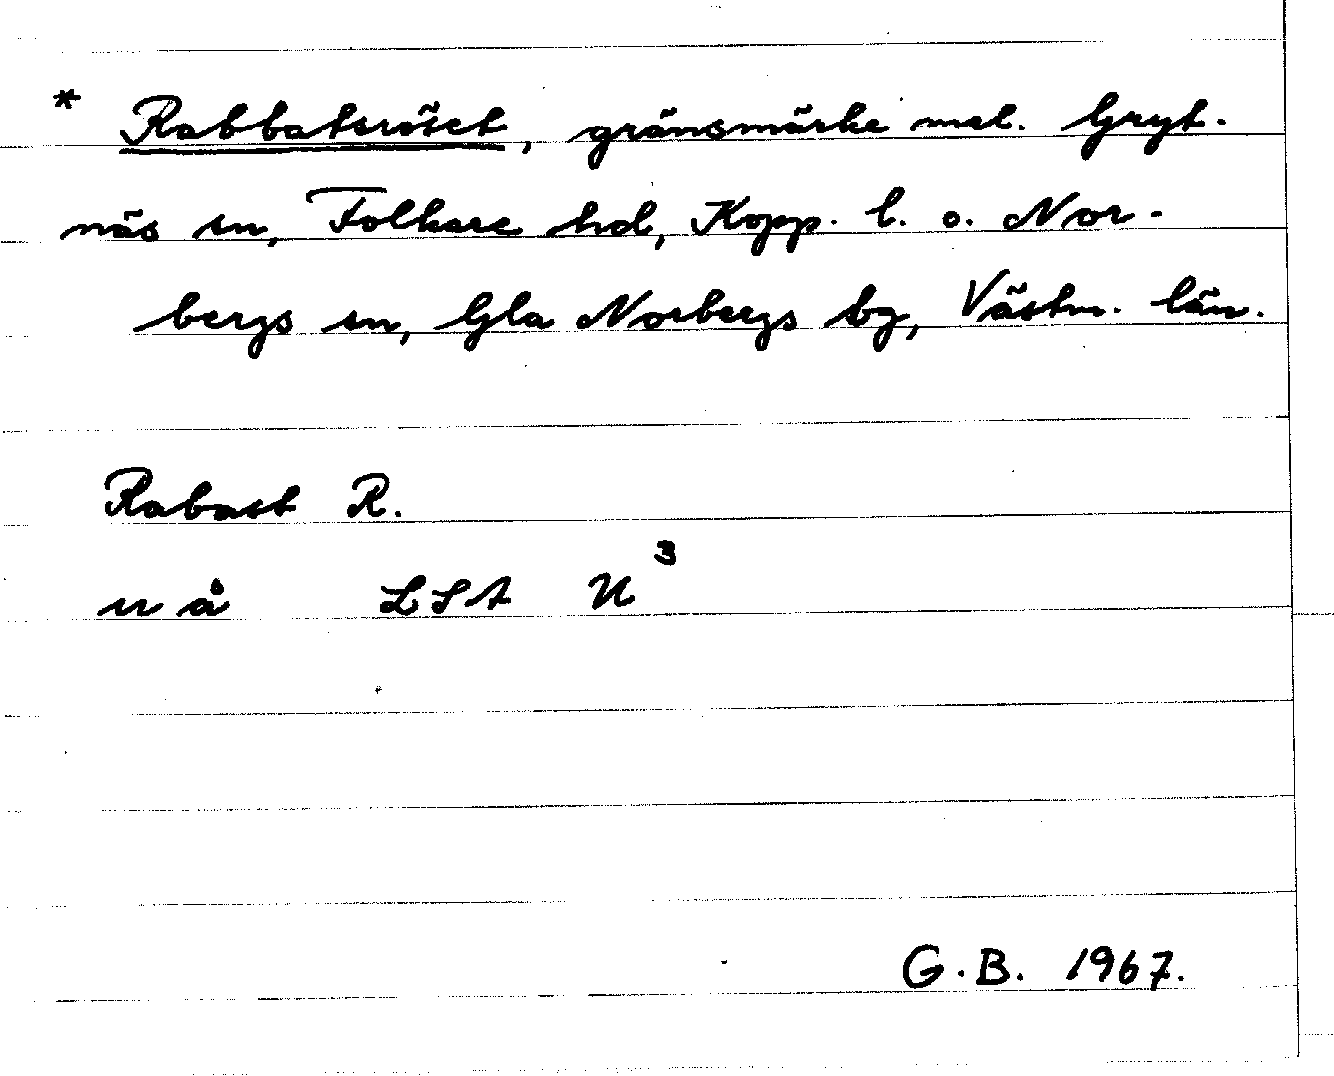 * Rabbatsröset, gränsmärke mel. Gryt-
näs sn, Folkare hd, Kopp. l. o. Nor-
bergs sn, Gla Norbergs bg, Västm. län.
Rabast R.
u å LSA U³
G.B. 1967.